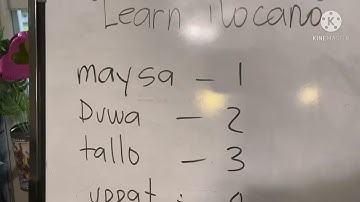 "Learn ilocano"
KINEMASTER
maysa - 1
Duwa - 2
tallo - 3
uppat - 4